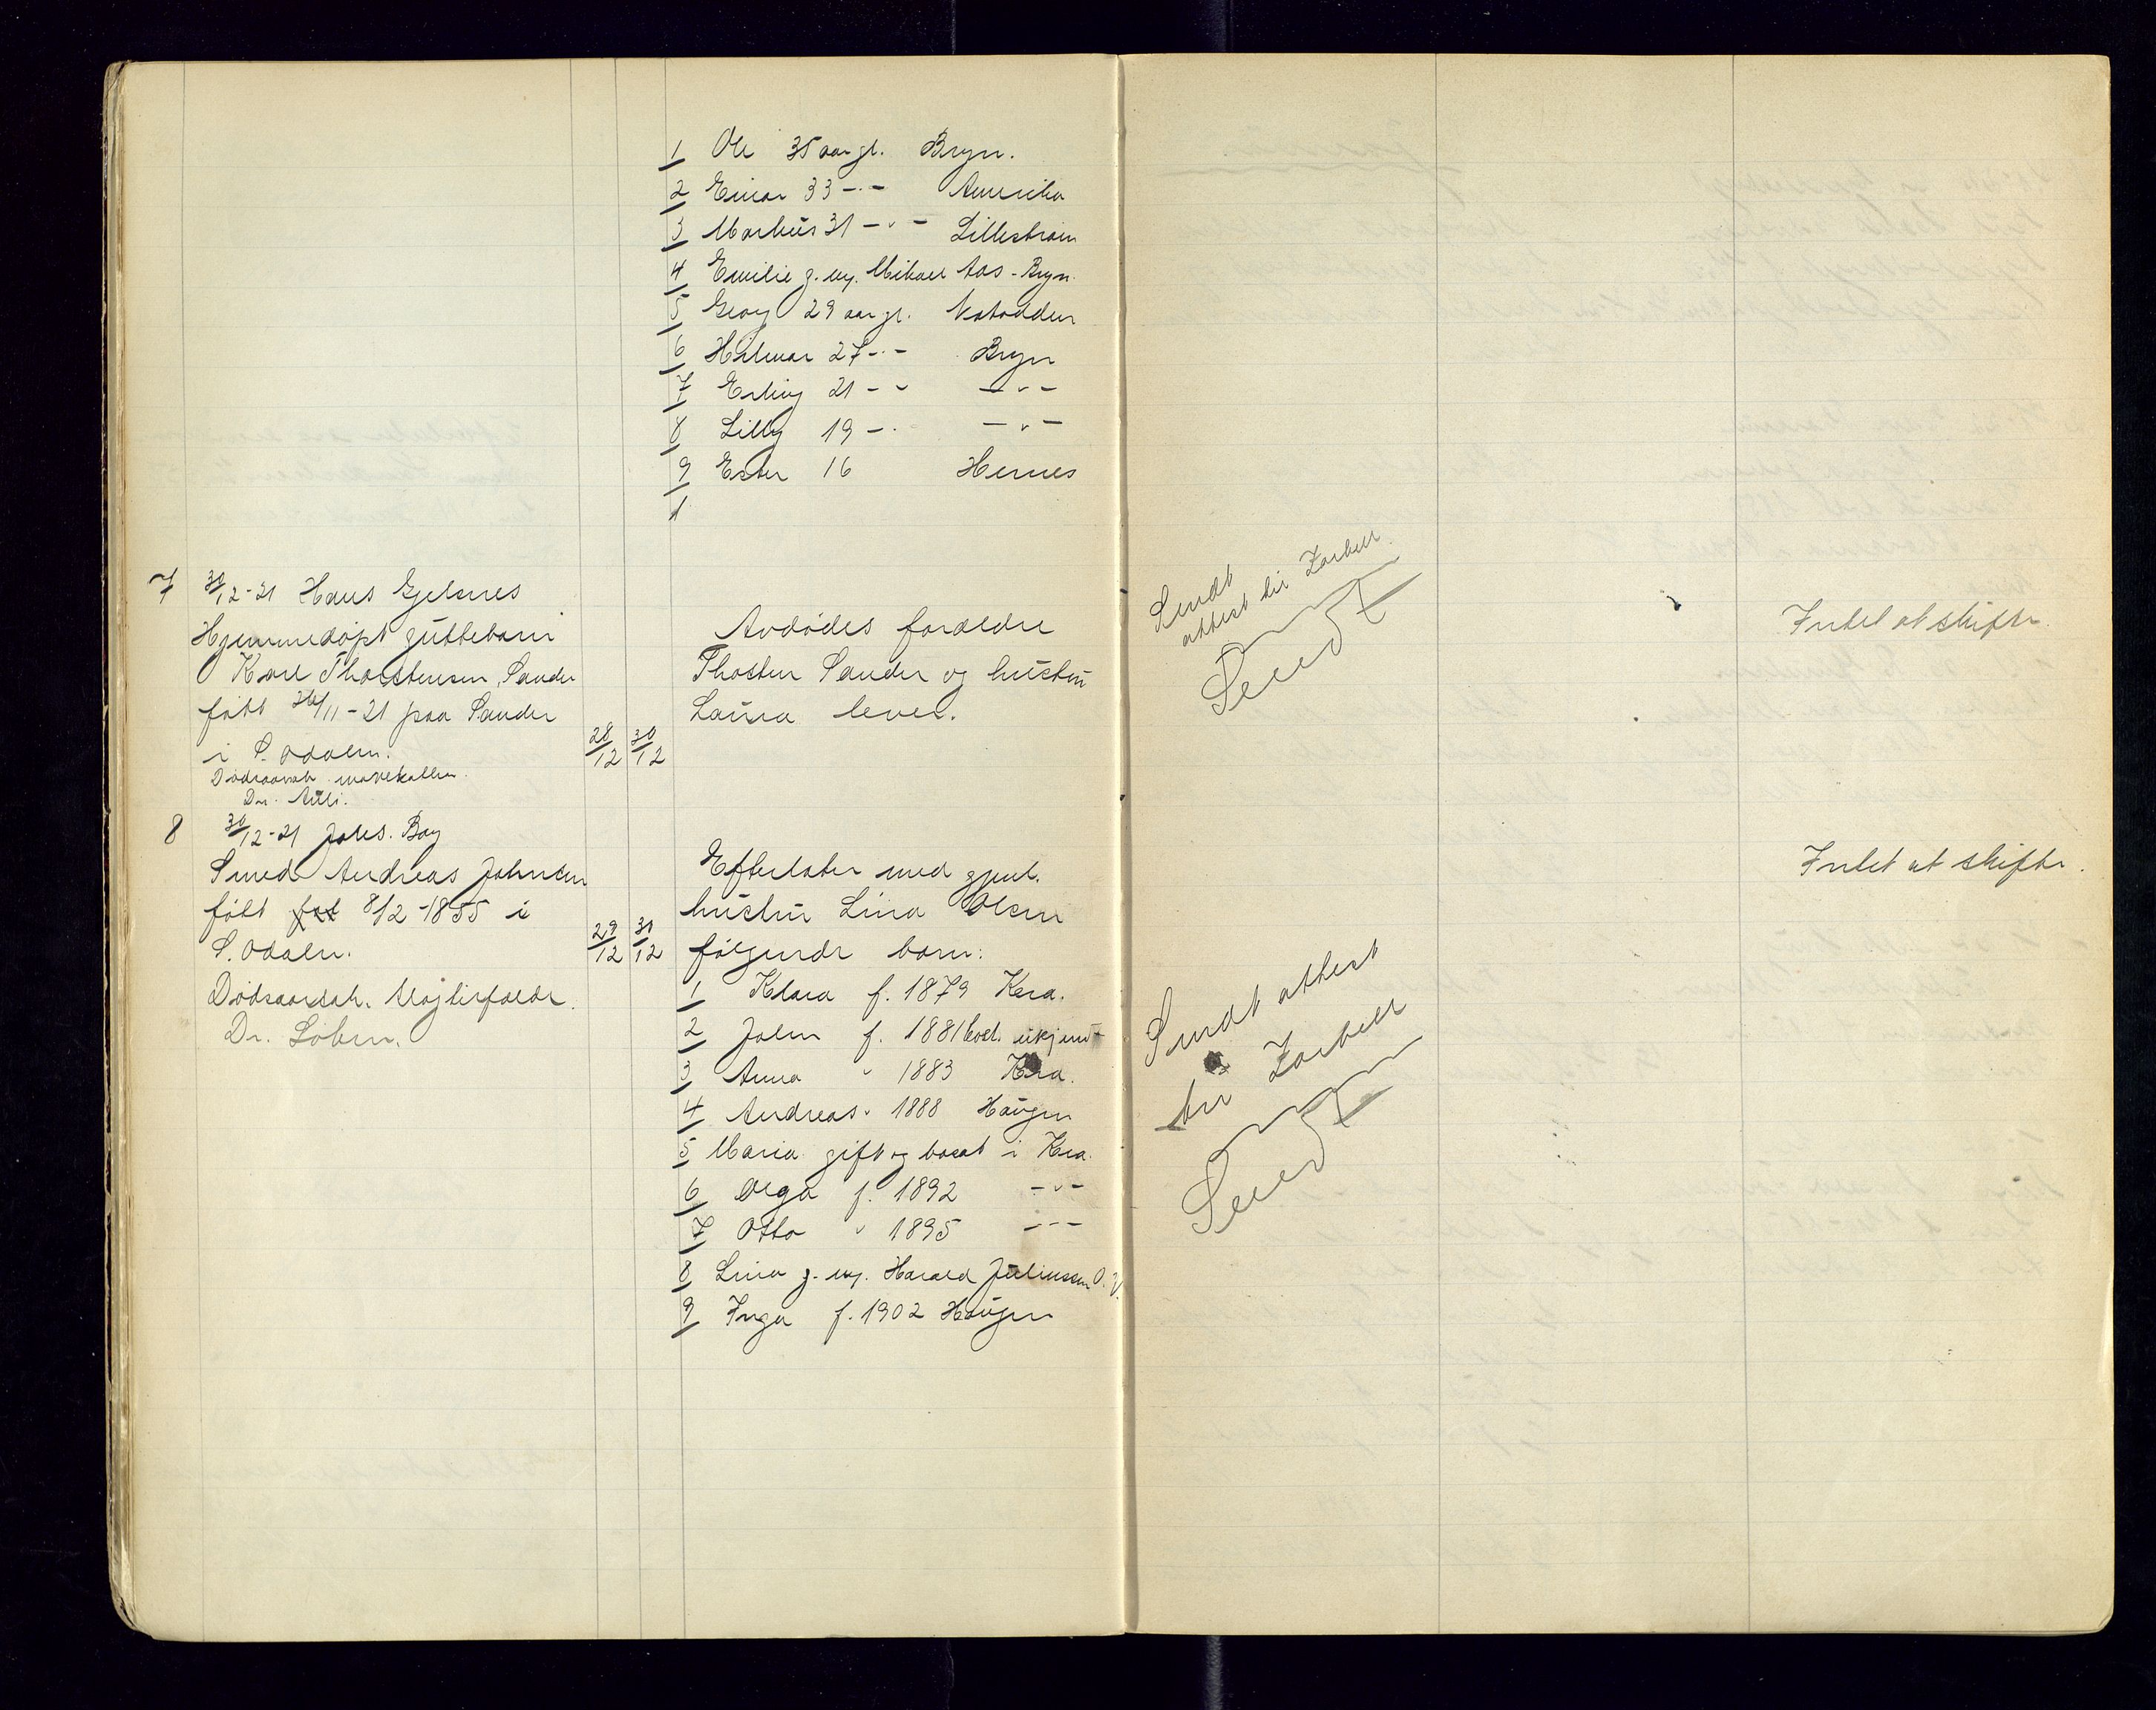 1 Ole 35 aar gl. Bryn.
2 Einar 33 -"- Amerika
3 Markus 31 -"- Lillestrøm
4 Emilie g. m. Mikael Aas - Bryn.
5 Georg 29 aar gl. Notodden
6 Hilmar 27 -"- Bryn
7 Erling 21 -"- -"-
8 Lilly 19 -"- -"-
9 Ester 16 Hernes
1
7 30/12-21 Hans Gjelsnes
Hjemmedøpt guttebarn
Karl Thorstensen, Sander
født 26/11-21 paa Sander
i S. Odalen.
Dødsaarsak mavekallun.
Dr.
28/12 30/12
Avdødes foreldre
Thosten Sander og hustru
Laura lever.
Sendt
attest til Zorkell
Intet at skifte.
8 30/12-21 Johs. Bay
Smed Andreas Johnsen
født fød 8/2-1855 i
S. Odalen.
Dødsaarsak.
Dr. Løken.
29/12 31/12
Efterlater med gjenl.
hustru Lina Olsen
følgende barn:
1 Klara f. 1879 Kra.
2 John f. 1881 bost. ukjendt
3 Anna " 1883 Kra.
4 Andreas " 1888 Haugen
5 Maria gift og bosat i Kra.
6 Olga f. 1892 -"-
7 Otto " 1895 -"-
8 Lina g. m. Harald Juliussen O. V.
9 Inga f. 1902 Haugen
Sendt attest
til Zorkell
Intet at skifte.